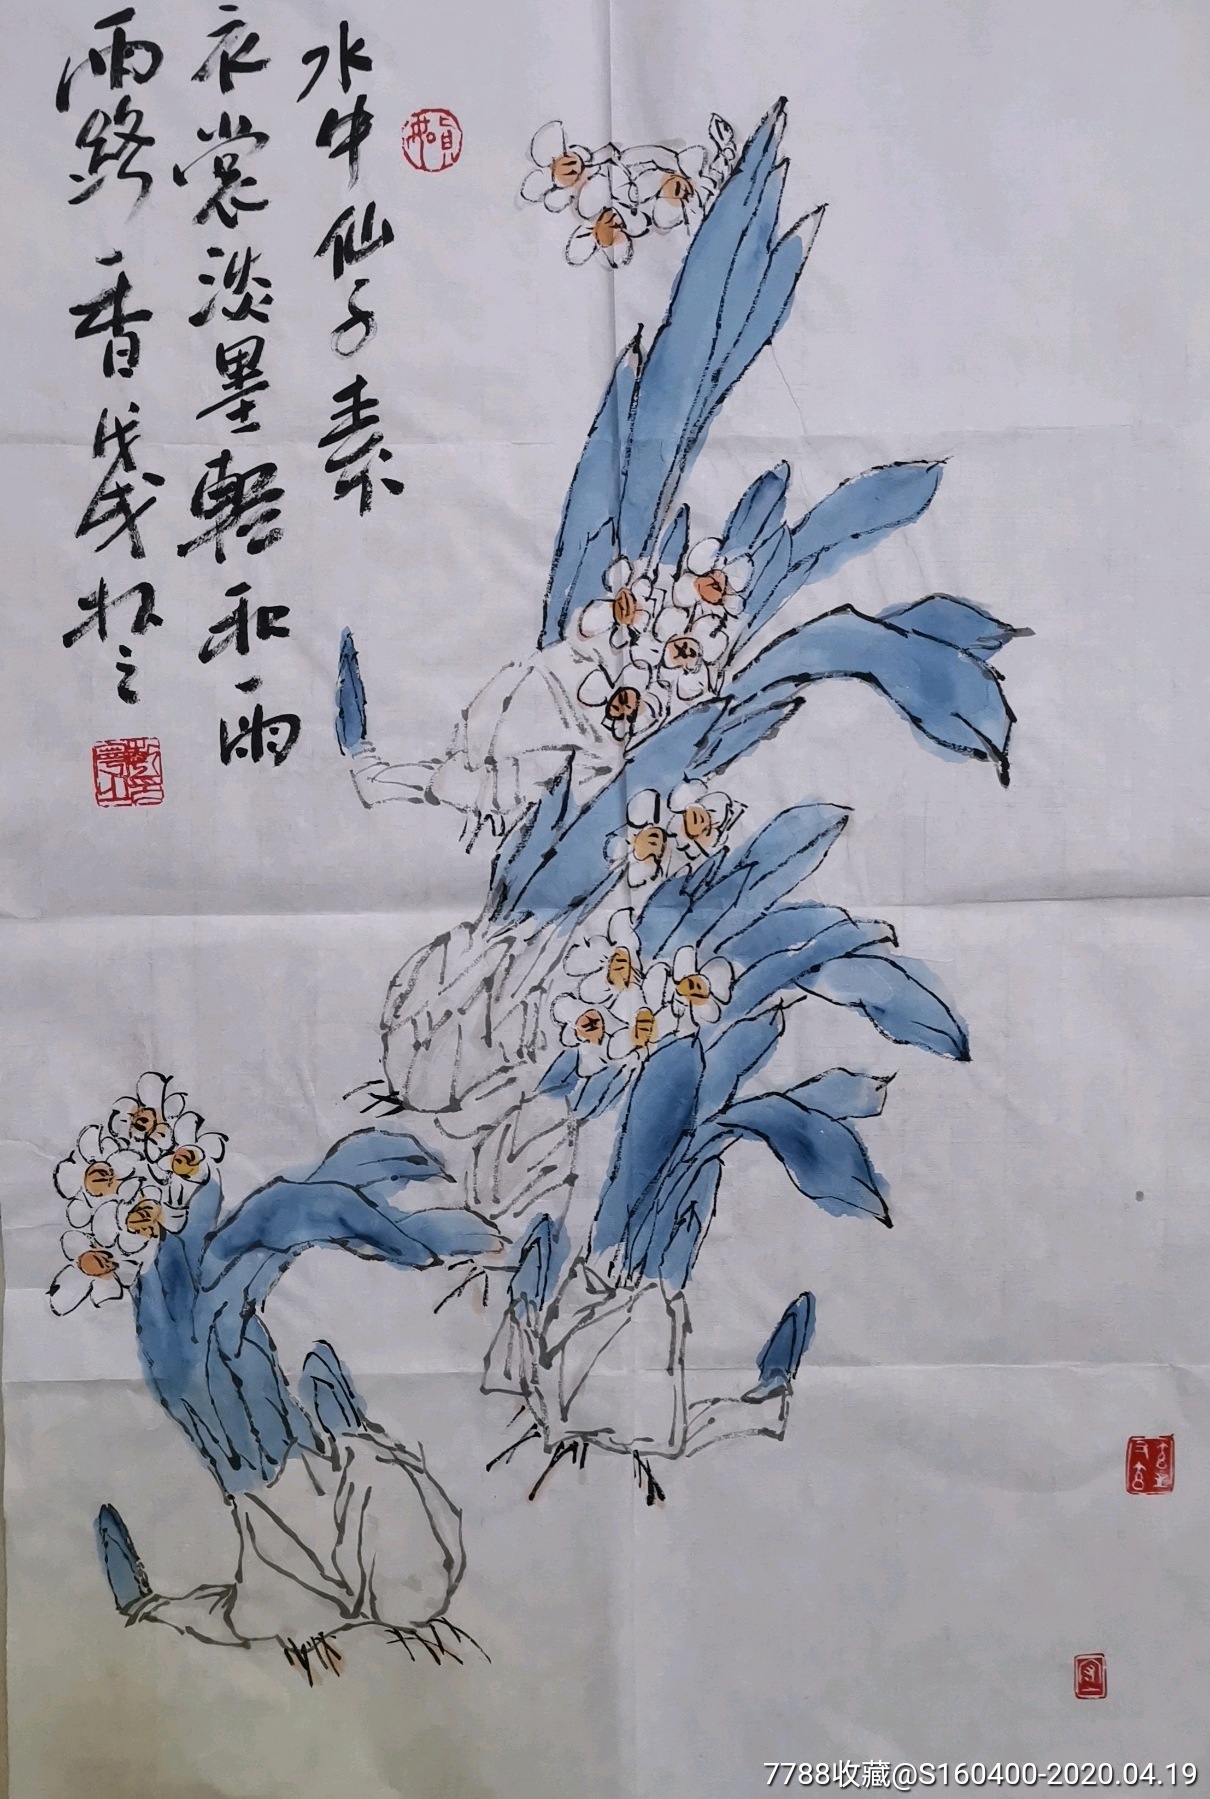 水中仙子素
衣裳淡墨輕和雨
露香戊戌
7788收藏@S160400-2020.04.19